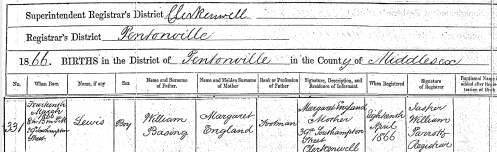 Superintendent Registrar's District Clerkenwell
Registrar's District Pentonville
1866. BIRTHS in the District of Pentonville in the County of Middlesex
No. When Born Name, if any Sex Name and Surname of Father Name and Maiden Surname of Mother Rank or Profession of Father Signature, Description, and Residence of Informant When Registered Signature of Registrar Baptismal Name
331 Fourteenth March 1866 39 Southampton Street Lewis Boy William Basing Margaret England Footman Margaret England Mother 39 Southampton Street Clerkenwell Eighteenth April 1866 William Registrar